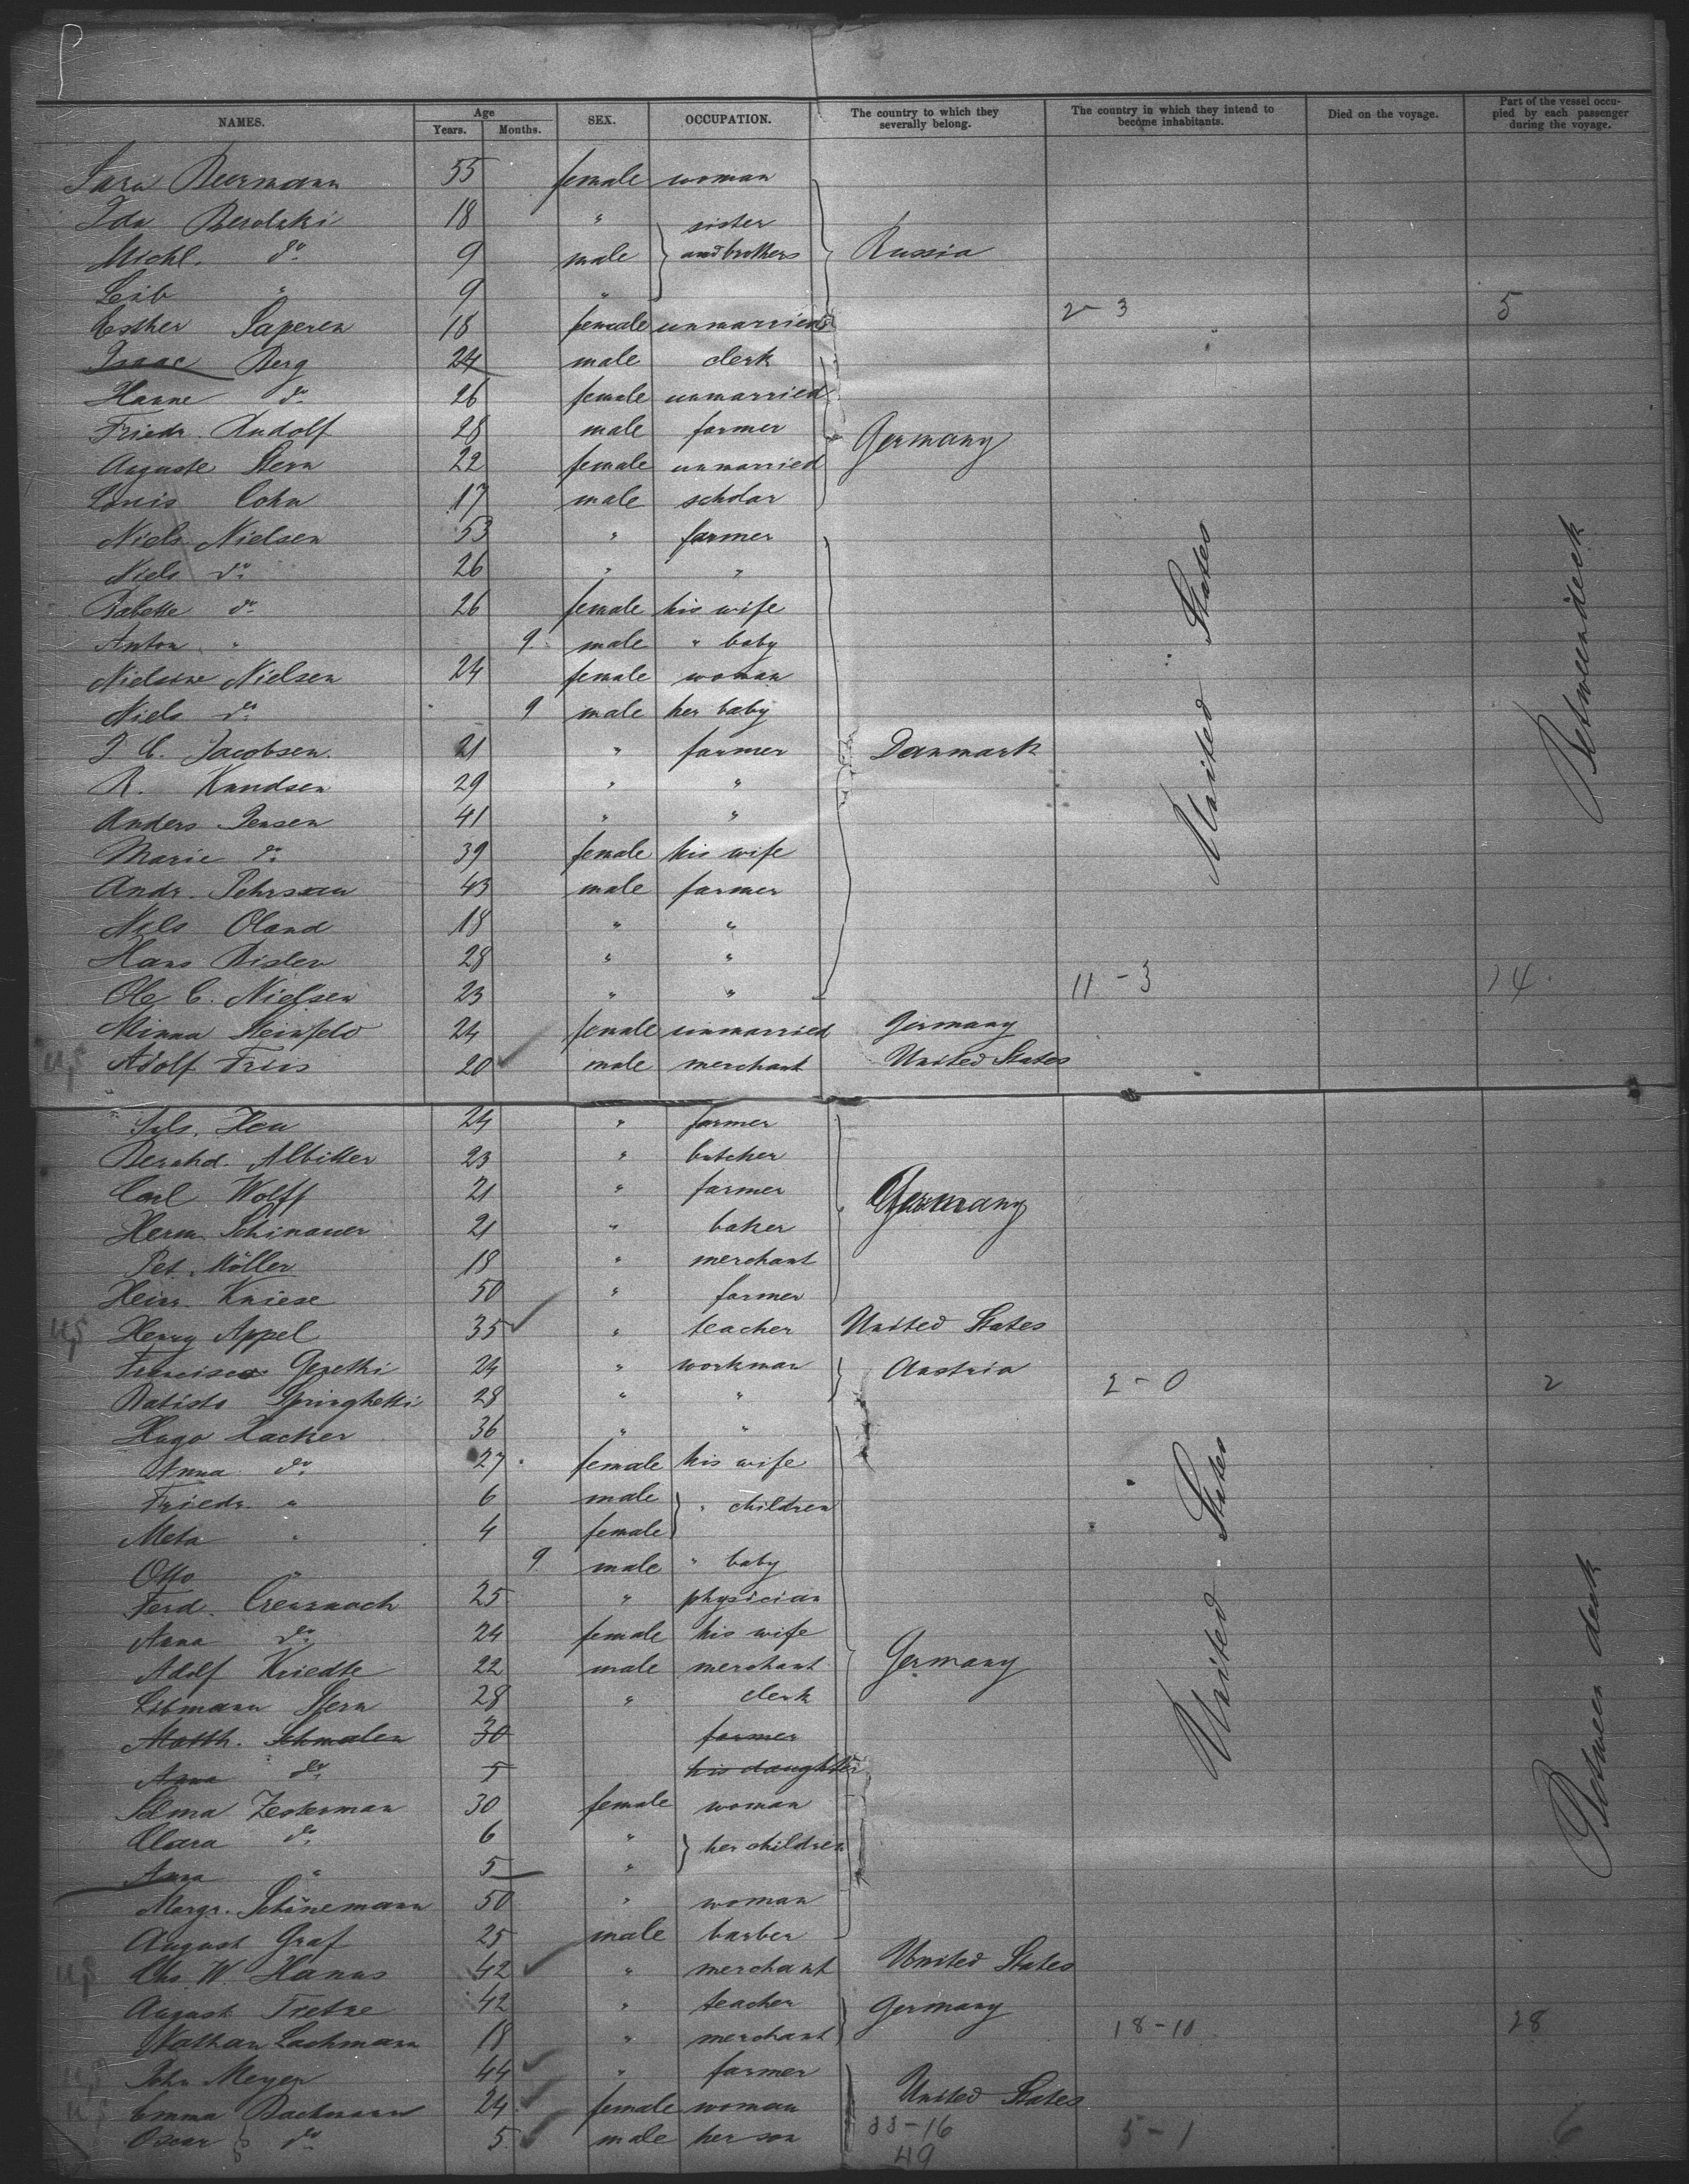 NAMES. Age Years. Months. SEX. OCCUPATION. The country to which they severally belong. The country in which they intend to become inhabitants. Died on the voyage. Part of the vessel occupied by each passenger during the voyage.
Sara Beermann 55 female woman
Ida 18 " sister
Michl. do 9 male and brothers Russia
Leib " 9 "
Esther Saperen 18 female unmarried 2-3 5
Isaac Berg 24 male clerk
Hanne do 26 female unmarried
Friedr. Rudolf 28 male farmer Germany
Auguste Stern 22 female unmarried
Louis Cohn 17 male scholar
Niels Nielsen 53 " farmer
Niels do 26 " "
Babette do 26 female his wife
Anton " 9 male " baby
Nielsine Nielsen 24 female woman
Niels do 9 male her baby
J. C. Jacobsen. 21 " farmer Danmark
R. Knudsen 29 " "
Anders Jensen 41 " "
Marie do 39 female his wife
Andr. Pehrsson 43 male farmer
Nils Oland 18 " "
Hans 28 " "
Ole C. Nielsen 23 " " 11-3 14
United States
Betweendeck
Minna Steinfeld 24 female unmarried Germany
US Adolf Friis 20 male merchant United States
Heu 24 " farmer
Bernhd. Albitker 23 " butcher
Carl Wolff 21 " farmer Germany
Herm. Schinauer 21 " baker
Pet. Möller 18 " merchant
Heinr. Kniese 50 " farmer
US Henry Appel 35 " teacher United States
Francisco 24 " workman Austria
Batista Springhetti 28 " " 2-0 2
Hugo Hacker 36 " "
Anna do 27 female his wife
Friedr. " 6 male " children
Meta " 4 female
Otto " 9 male " baby
Ferd. Creuznach 25 " physician
Anna do 24 female his wife
Adolf Kriedte 22 male merchant Germany
Libmann Stern 28 " clerk
Matth. Schmalen 30 farmer
Anna do 5 his daughter
Selma Zesterman 30 female woman
Clara do 6 " her children
Anna " 5 "
Margr. Schünemann 50 " woman
August Graf 25 male barber
US Chs W. Hanns 42 " merchant United States
August Tretze 42 " teacher Germany
Nathan Lachmann 18 " merchant 18-10 28
US John Meyer 44 " farmer
US Emma Bachmann 24 female woman United States
Oscar do 5 male her son 33-16 5-1 6
49
United States
Between deck